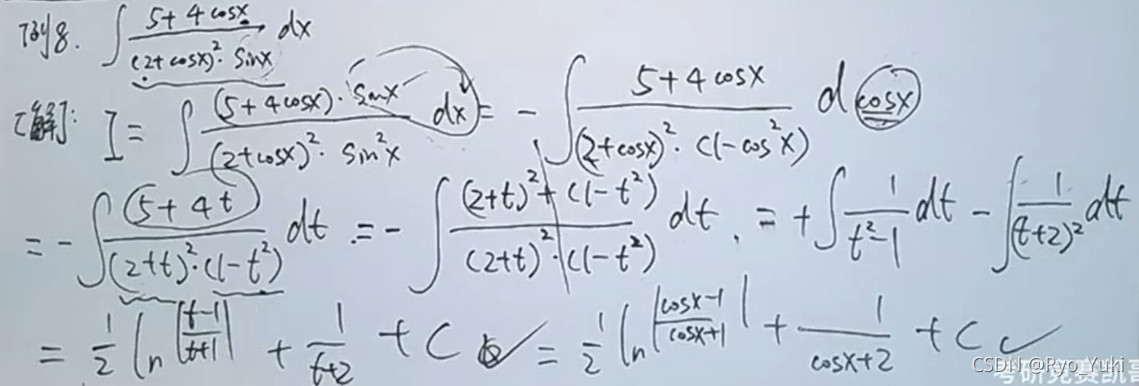 例8. ∫ (5+4cosx)/((2+cosx)²·sinx) dx
[解]: I = ∫ ((5+4cosx)·sinx)/((2+cosx)²·sin²x) dx = -∫ (5+4cosx)/((2+cosx)²·(1-cos²x)) d cosx
= -∫ (5+4t)/((2+t)²·(1-t²)) dt = -∫ ((2+t)²+(1-t²))/((2+t)²·(1-t²)) dt = +∫ 1/(t²-1) dt - ∫ 1/(t+2)² dt
= 1/2 ln|(t-1)/(t+1)| + 1/(t+2) + C = 1/2 ln|(cosx-1)/(cosx+1)| + 1/(cosx+2) + C
CSDN @Ryo_Yuki
考研竞赛凯哥